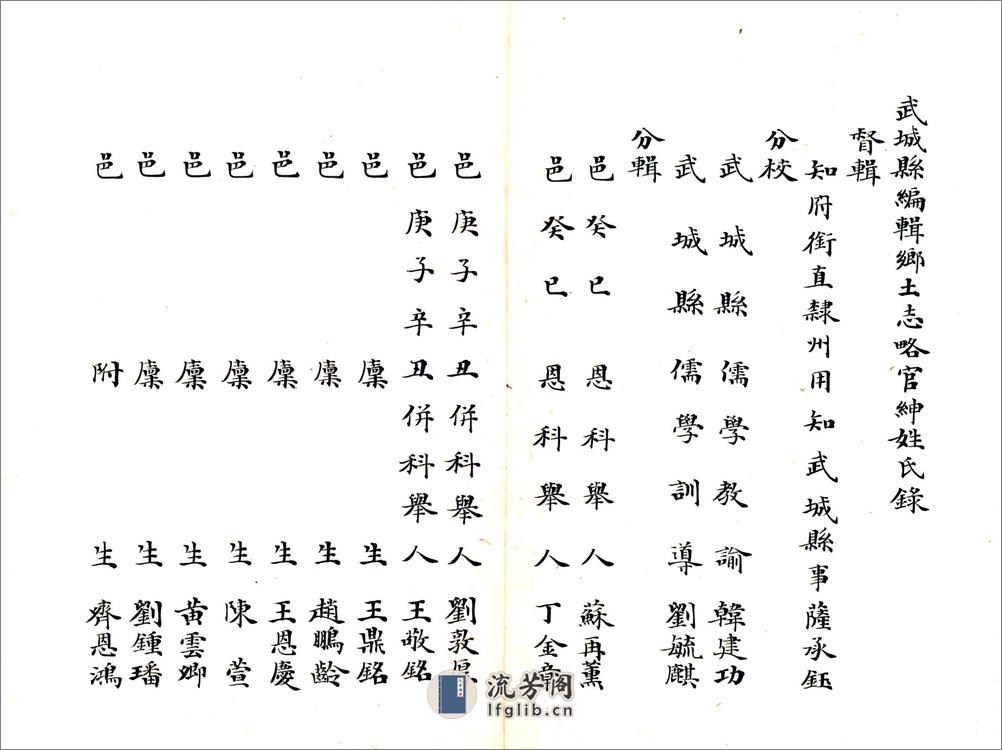 武城縣編輯鄉土志略官紳姓氏錄
督輯
知府銜直隸州用知武城縣事薩承鈺
分校
武城縣儒學教諭韓建功
武城縣儒學訓導劉毓麒
分輯
邑癸巳恩科舉人蘇再薰
邑癸巳恩科舉人丁金章
邑庚子辛丑併科舉人劉敦厚
邑庚子辛丑併科舉人王敬銘
邑廩生王鼎銘
邑廩生趙鵬齡
邑廩生王恩慶
邑廩生陳萱
邑廩生黃雲卿
邑廩生劉鍾璠
邑附生齊恩鴻
流芳阁
lfglib.cn